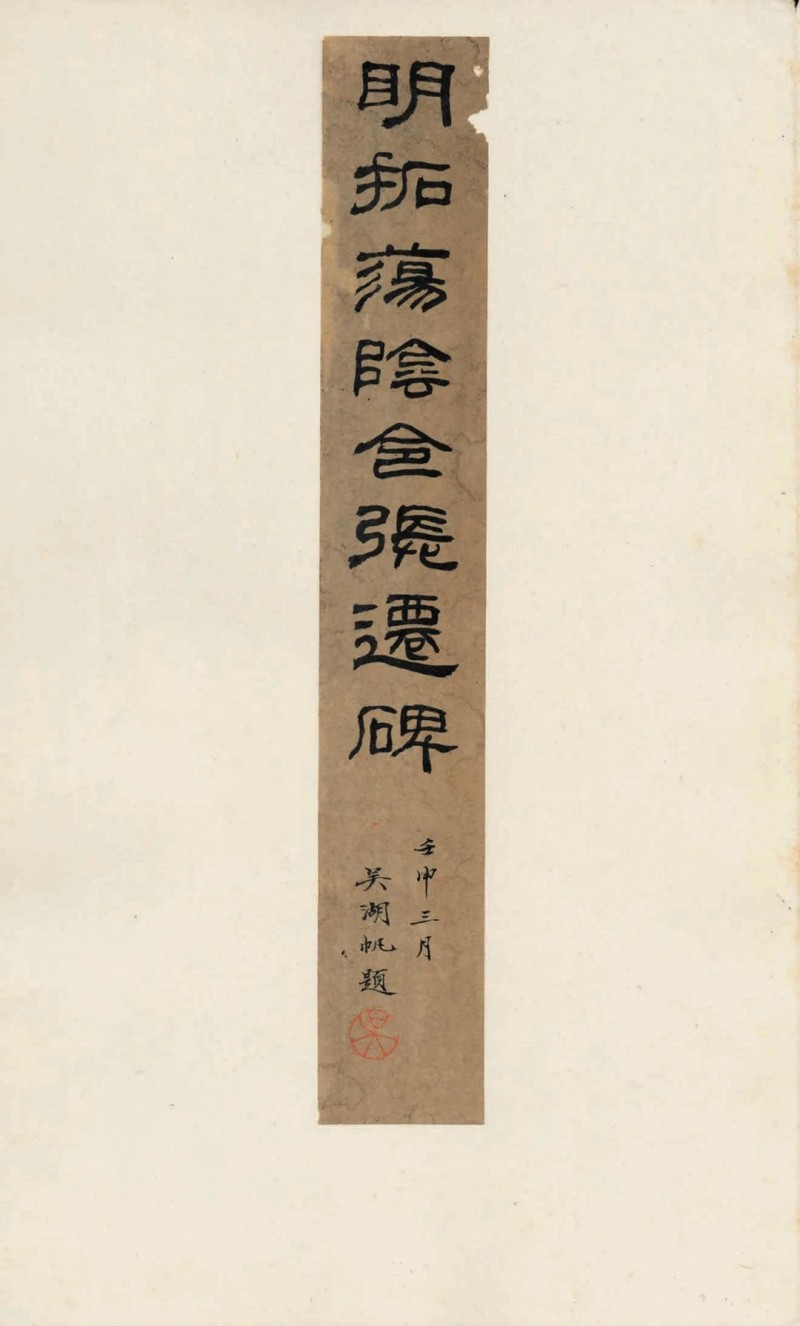 明拓蕩陰令張遷碑
壬申三月
吳湖帆題
吳